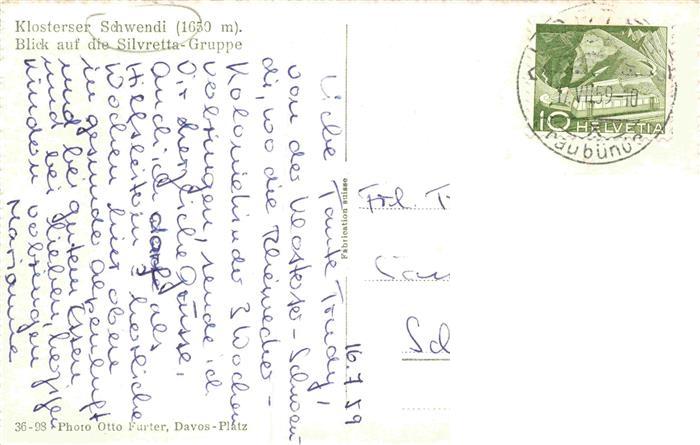 Klosterser Schwendi (1650 m).
Blick auf die Silvretta-Gruppe
16.7.59
Liebe Tante Trudy,
von der Klosterser-Schwen-
di, wo die Rheinecker-
Koloniekinder 3 Wochen
verbringen, sende ich
Dir herzliche Grüsse.
Auch ich darf als
Hilfsleiterin 3 herrliche
Wochen hier oben
in gesunder Alpenluft
und bei gutem Essen
und bei lieben, herzigen
Kindern verbringen
Marianne
Fabrication suisse
Frl. T
Sch
HELVETIA
10
VII.59
36-98 Photo Otto Furter, Davos-Platz